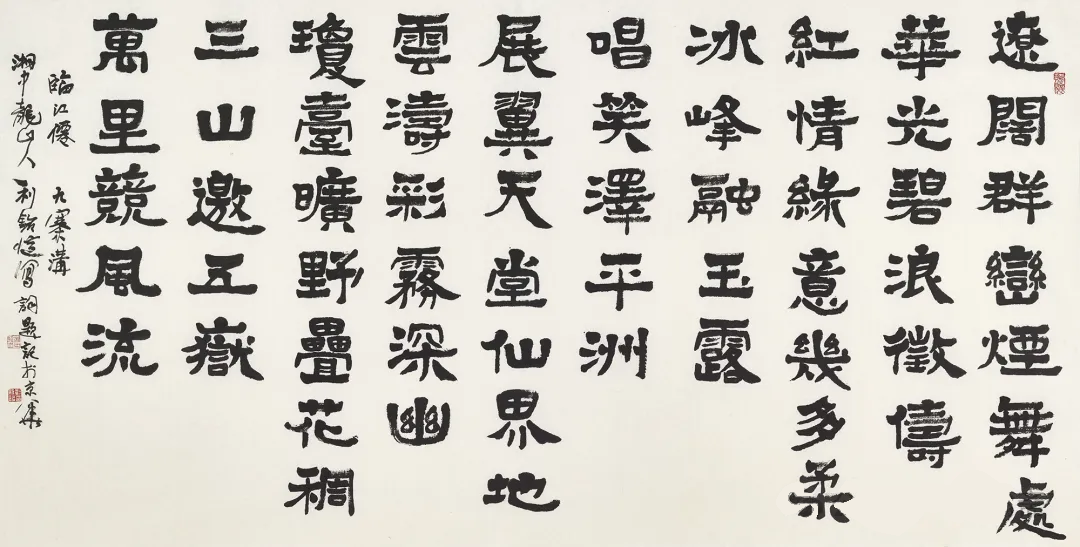 遼闊群巒煙舞處
華光碧浪徵儔
紅情綠意幾多柔
冰峰融玉露
唱笑澤平洲
展翼天堂仙界地
雲濤彩霧深幽
瓊臺曠野疊花稠
三山邀五嶽
萬里競風流
臨江僊 九寨溝
湘中龍山人 利銘 寫詞題記於京華